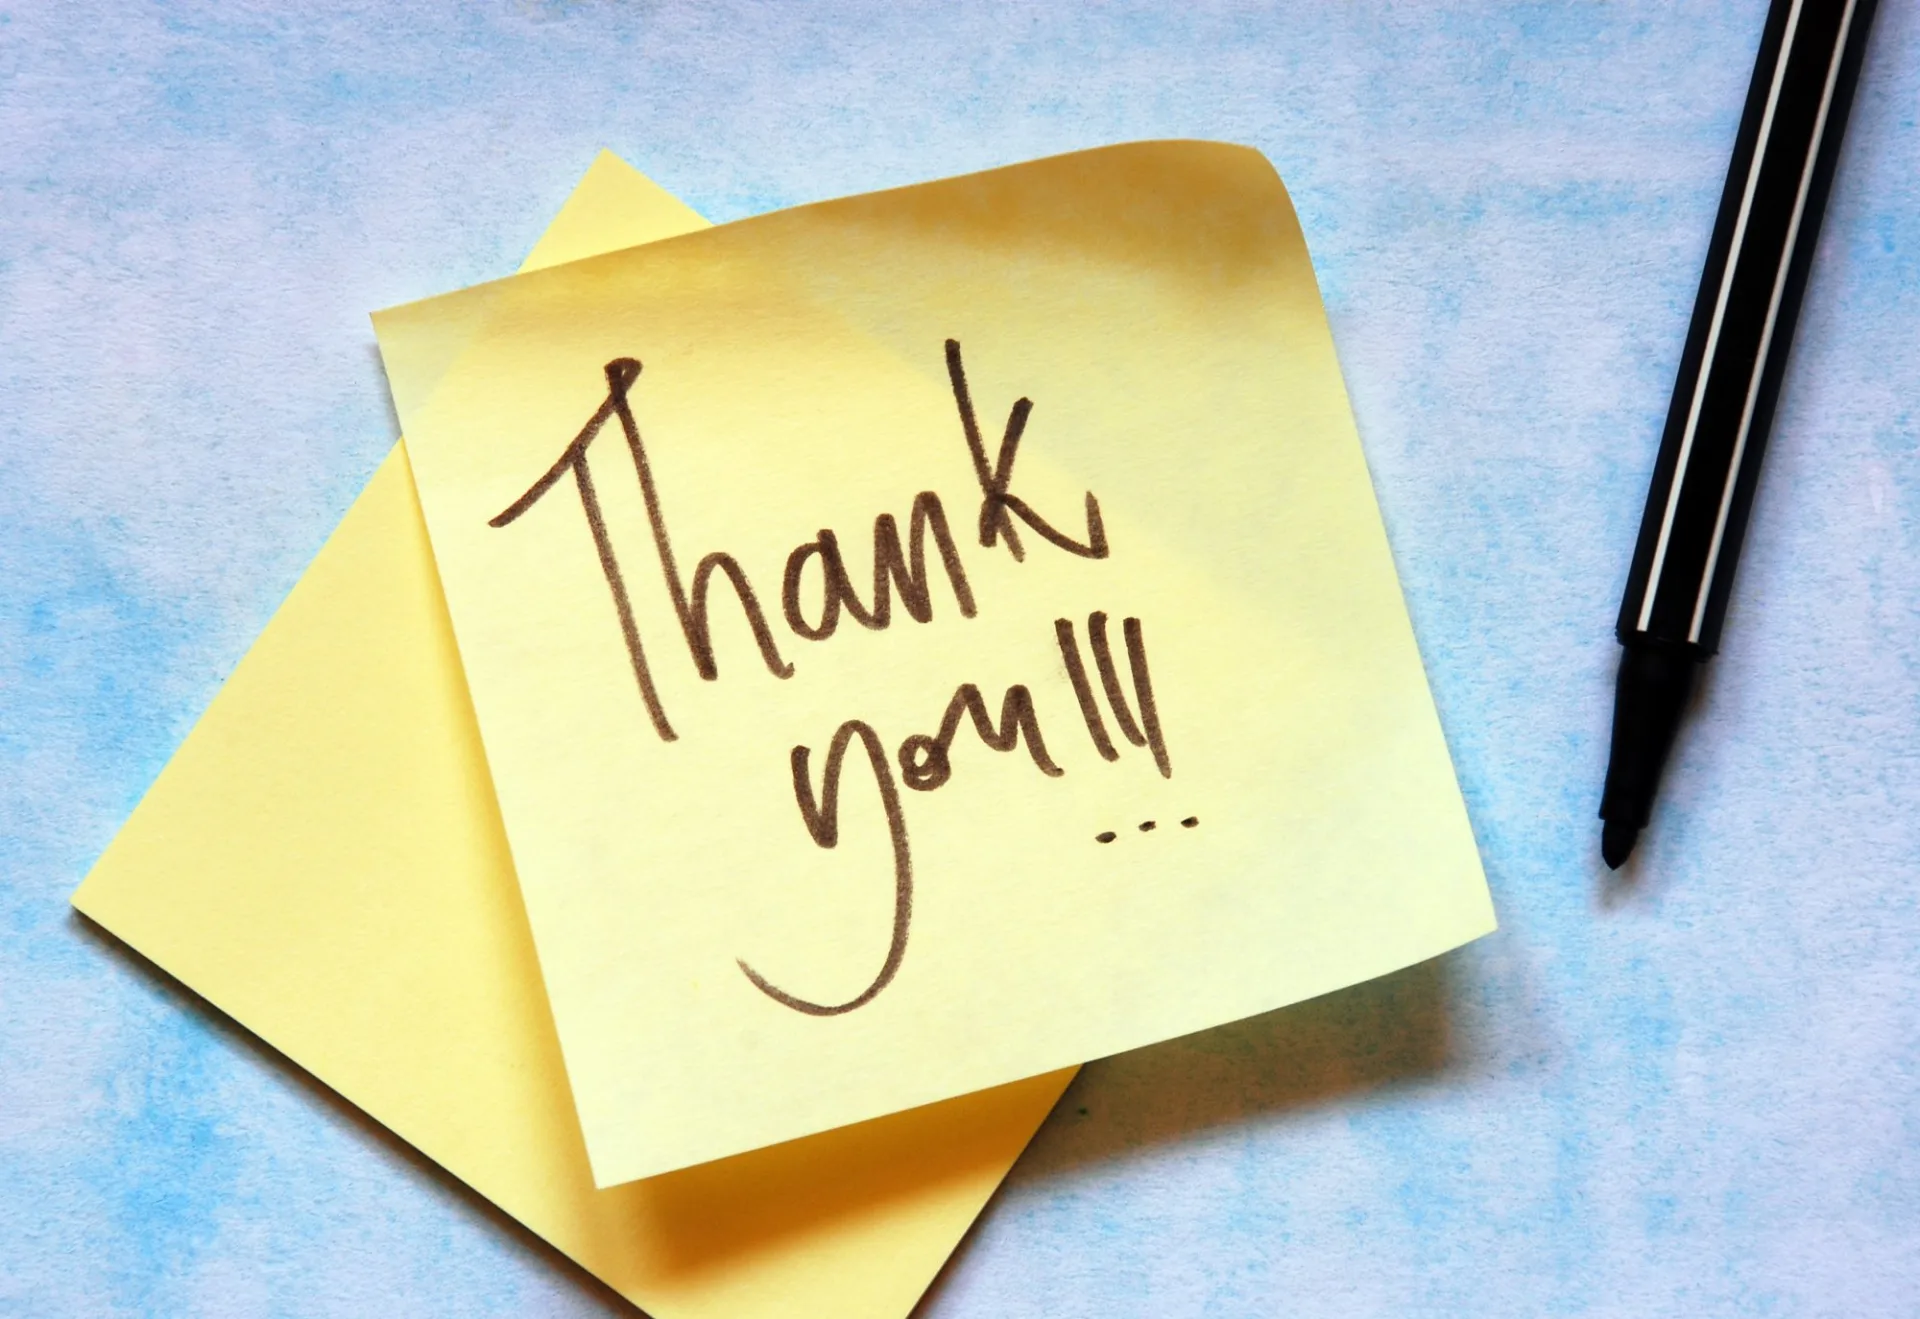 Thank
you!!!